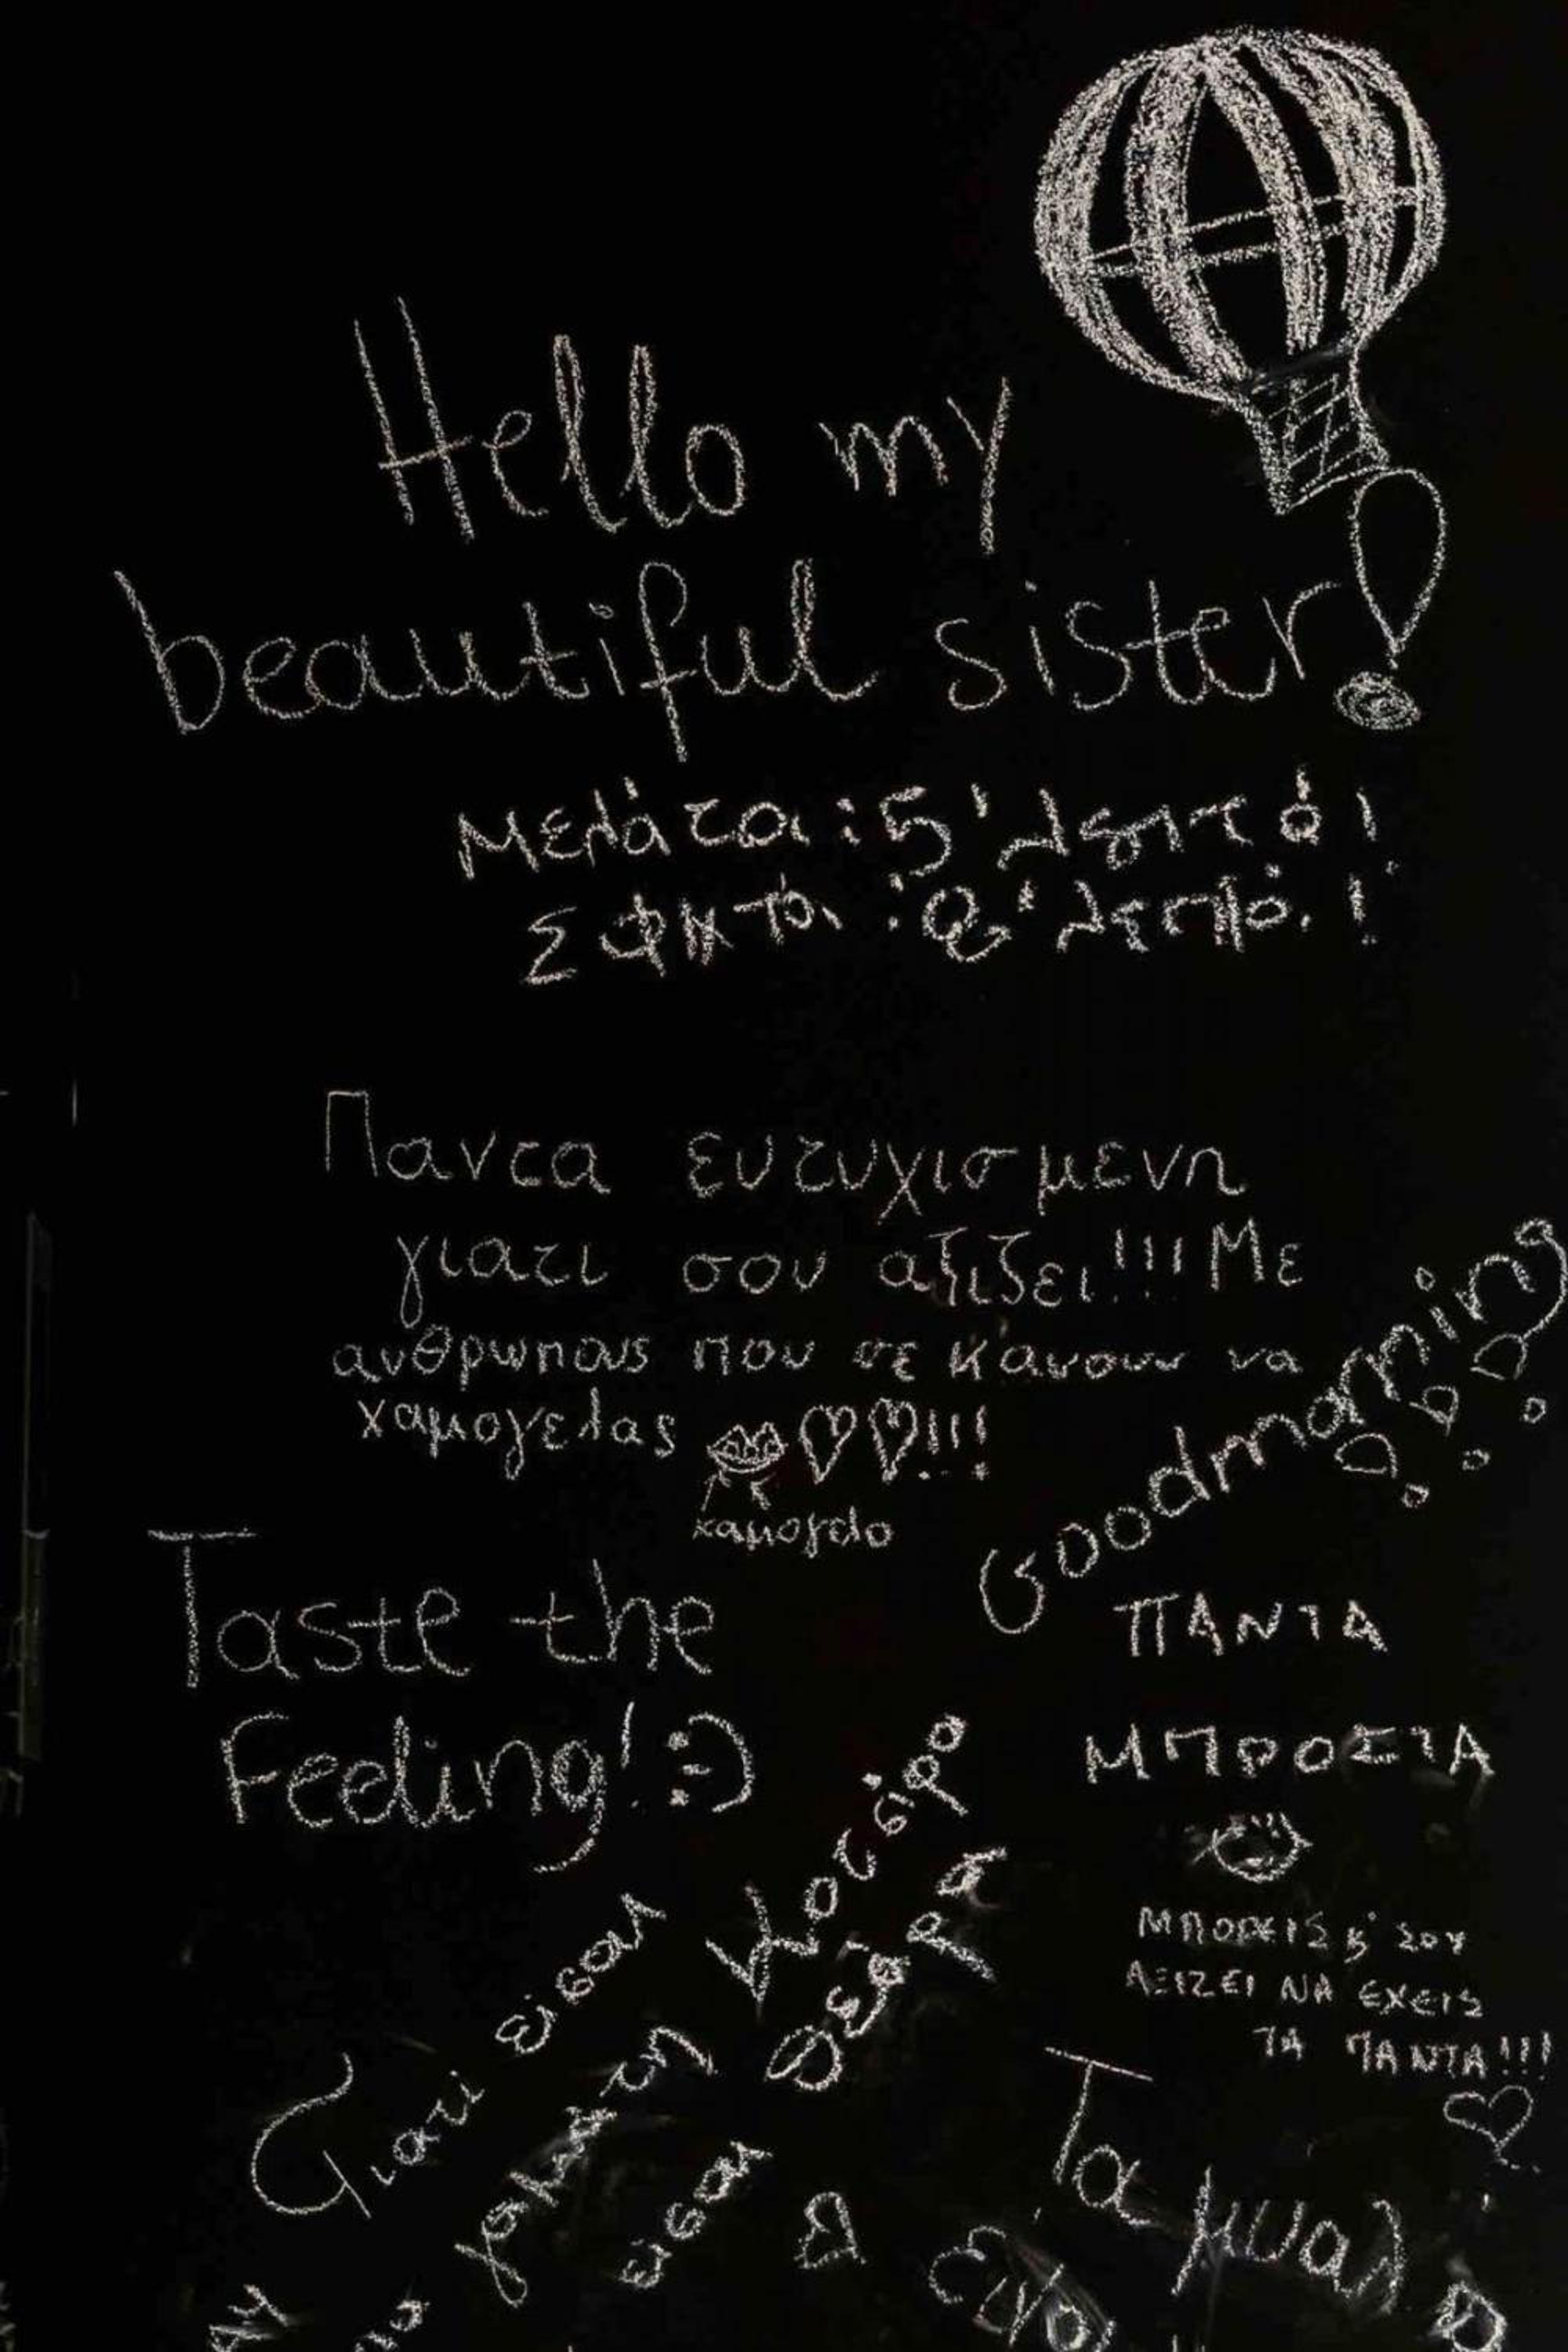 Hello my
beautiful sister!
Μελάτα: 5' λεπτά!
Σφητά: 8' λεπτά!
Παντα ευτυχισμενη
γιατι σου αξιζει!!! Με
ανθρωπους που σε κανουν να
χαμογελας !!!
χαμογελο
Goodmorning
Taste the
feeling! :-)
ΠΑΝΤΑ
ΜΠΡΟΣΤΑ
ΜΠΟΡΕΙΣ κ' ΣΟΥ
ΑΞΙΖΕΙ ΝΑ ΕΧΕΙΣ
ΤΑ ΠΑΝΤΑ!!!
Γιατί είσαι
γεμάτη
είσαι
Τα μυαλ